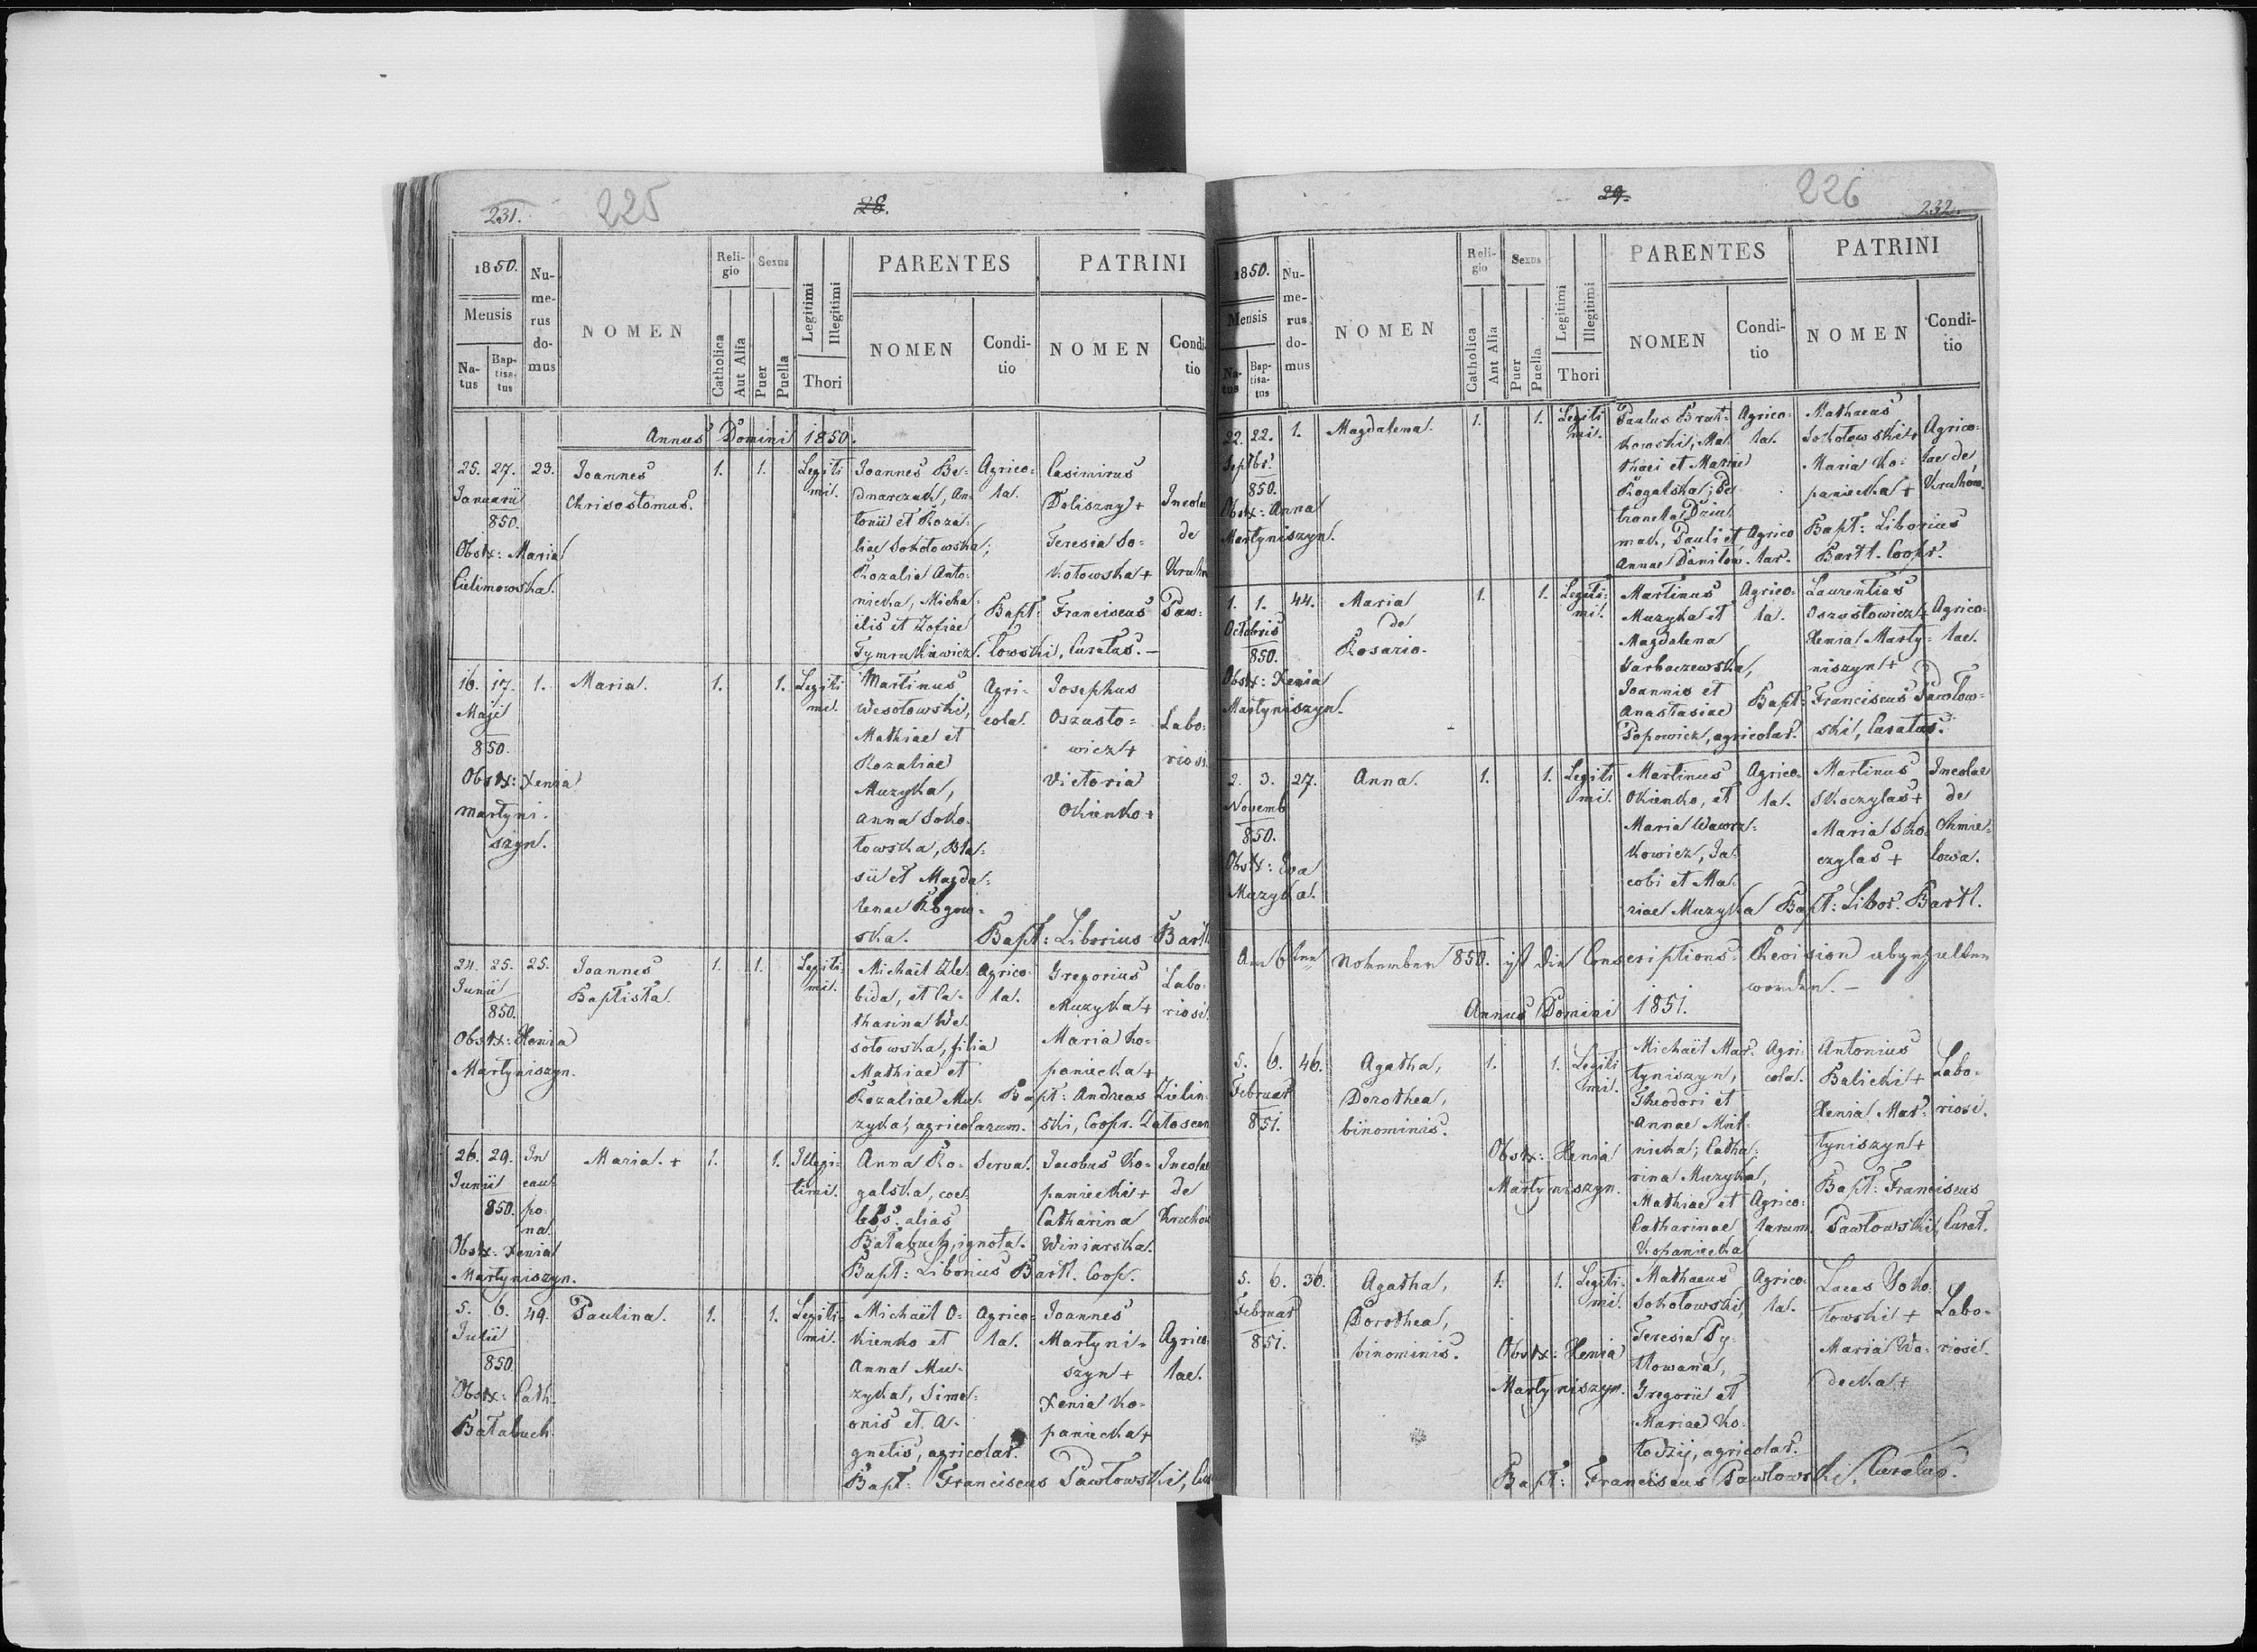 231. 225 28.
1850.
Mensis
Na-
tus
Bap-
tisa-
tus
Nu-
me-
rus
do-
mus
NOMEN
Reli-
gio
Catholica
Aut Alia
Sexus
Puer
Puella
Legitimi
Illegitimi
Thori
PARENTES
NOMEN
Condi-
tio
PATRINI
NOMEN
Condi-
tio
Annus Domini 1850.
25. 27. 23.
Januarii
850.
Obstx: Maria
Cielimowska.
Joannes
Chrisostomus.
1. 1.
Legiti
mi.
Joannes Be-
dnarczuk, An-
tonii et Roza-
liae Sokołowska;
Rozalia Anto-
nicka, Micha-
ëlis et Zofiae
Tymrakiewicz.
Agrico-
la.
Casimirus
Doliszny +
Teresia So-
kołowska +
Incolae
de
Bapt: Franciscus Paw-
łowski, Curatus. —
16. 17. 1.
Maji
850.
Obstx: Xenia
Martyni-
szyn.
Maria.
1. 1.
Legiti
mi.
Martinus
Wesołowski,
Mathiae et
Rozaliae
Muzyka,
Anna Soko-
łowska, Bla-
sii et Magda-
lenae Rogow-
ska.
Agri-
cola.
Josephus
Oszusto-
wicz +
Victoria
Okienko +
Labo-
riosi.
Bapt: Liborius Bartl
24. 25. 25.
Junii
850.
Obstx: Xenia
Martyniszyn.
Joannes
Baptista.
1. 1.
Legiti-
mi.
Michaël Zle-
bida, et Ca-
tharina We-
sołowska, filia
Mathiae et
Rozaliae Mu-
zyka, agricolarum.
Agrico-
la.
Gregorius
Muzyka +
Maria Ko-
paniecka +
Labo-
riosi.
Bapt: Andreas Zielin-
ski, Coopr.
26. 29. In
Junii cau-
850. po-
na.
Obstx: Xenia
Martyniszyn.
Maria. +
1. 1.
Illegi-
timi.
Anna Ro-
galska, coe-
lebs. alias
Bałabuch, ignota.
Serva.
Jacobus Ko-
paniecki +
Catharina
Winiarska.
Incolae
de
Bapt: Liborius Bartl. Coop.
5. 6. 49.
Julii
850.
Obstx: Cath.
Bałabuch.
Paulina.
1. 1.
Legiti-
mi.
Michaël O-
kienko et
Anna Mu-
zyka, Sime-
onis et A-
gnetis, agricolar.
Agrico-
la.
Joannes
Martyni-
szyn +
Xenia Ko-
paniecka +
Agrico-
lae.
Bapt: Franciscus Pawłowski,
29. 226 232.
1850.
Mensis
Na-
tus
Bap-
tisa-
tus
Nu-
me-
rus
do-
mus
NOMEN
Reli-
gio
Catholica
Aut Alia
Sexus
Puer
Puella
Legitimi
Illegitimi
Thori
PARENTES
NOMEN
Condi-
tio
PATRINI
NOMEN
Condi-
tio
22. 22. 1.
Septbr.
850.
Obstx: Anna
Martyniszyn.
Magdalena.
1. 1.
Legiti
mi.
Paulus Brat-
kowski, Ma-
thaei et Mariae
Rogalska; Pe-
tronela Dziu-
mak, Pauli et
Annae Daniłow.
Agrico-
la.
Agrico
lar.
Mathaeus
Sokołowski +
Maria Ko-
paniecka +
Agrico-
lae de
Bapt: Liborius
Bartl. Coopr.
1. 1. 44.
Octobris
850.
Obstx: Xenia
Martyniszyn.
Maria
de
Rosario.
1. 1.
Legiti-
mi.
Martinus
Muzyka et
Magdalena
Garbaczewska,
Joannis et
Anastasiae
Popowicz, agricolar.
Agrico-
la.
Laurentius
Oszustowicz +
Xenia Marty-
niszyn +
Agrico-
lae.
Bapt: Franciscus Pawłow-
ski, Curatus.
2. 3. 27.
Novemb
850.
Obstx: Eva
Muzyka.
Anna.
1. 1.
Legiti
mi.
Martinus
Okienko, et
Maria Wawrz-
kowicz, Ja-
cobi et Ma-
riae Muzyka
Agrico-
la.
Martinus
Skoczylas +
Maria Sko-
czylas +
Incolae
de
Chmie-
lowa.
Bapt: Libor. Bartl.
Am 6ten November 850. ist die Conscriptions-Revision abgehalten
worden. —
Annus Domini 1851.
5. 6. 46.
Februar
851.
Agatha,
Dorothea,
binominis.
1. 1.
Legiti
mi.
Obstx: Xenia
Martyniszyn.
Michaël Mar-
tyniszyn,
Theodori et
Annae
nicka; Catha-
rina Muzyka,
Mathiae et
Catharinae
Kopaniecka
Agri-
cola.
Agrico-
larum.
Antonius
Balicki +
Xenia Mar-
tyniszyn +
Labo-
riosi.
Bapt: Franciscus
Pawłowski, Curat.
5. 6. 36.
Februar
851.
Agatha,
Dorothea,
binominis.
1. 1.
Legiti-
mi.
Obstx: Xenia
Martyniszyn.
Mathaeus
Sokołowski,
Teresia Py-
tlowana,
Gregorii et
Mariae Ko-
łodzij, agricolar.
Agrico-
la.
Lucas Soko-
łowski +
Maria Wo-
decka +
Labo-
riosi.
Bapt: Franciscus Pawłowski, Curatus.